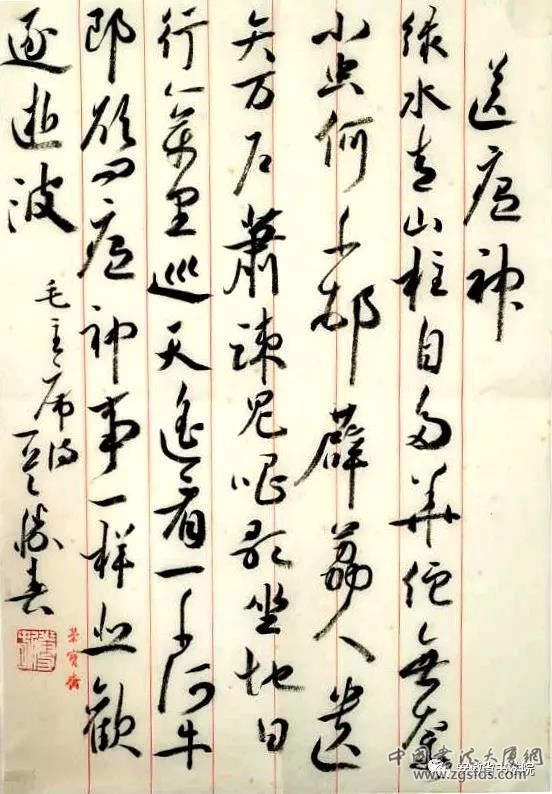 送瘟神
绿水青山枉自多華佗無奈
小虫何千邨薜荔人遗
矢万户蕭疎鬼唱歌坐地日
行八萬里巡天遥看一千河牛
郎欲问瘟神事一样悲歡
逐逝波
毛主席诗
荣寶斋
中国书法大厦网
www.zgsfds.com
安徽省书法院